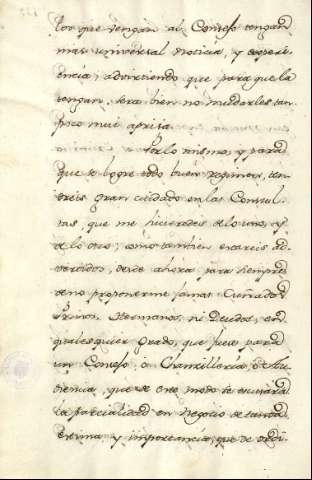 Por que vengan al Consejo tengan
mas universal noticia, y experi
encia; advirtiendo que para que la
tengan, sera bien no mudarles tan
poco mui aprisa.
Por lo mismo, y para
que se logre todo buen regimen, ten
dreis gran cuidado en las Consul
tas, que me hiciereis de lo uno, y
de lo otro; como tambien estareis ad
vertidos, desde ahora para siempre
de no proponerme jamas Cuñados
Primos, Hermanos, ni Deudos, en
qualesquier grado, que sea para
un Consejo, ò Chancilleria, ò Au
diencia, que de este modo se escusara
la parcialidad en negocio de tanta
estima y importancia, que de ordi